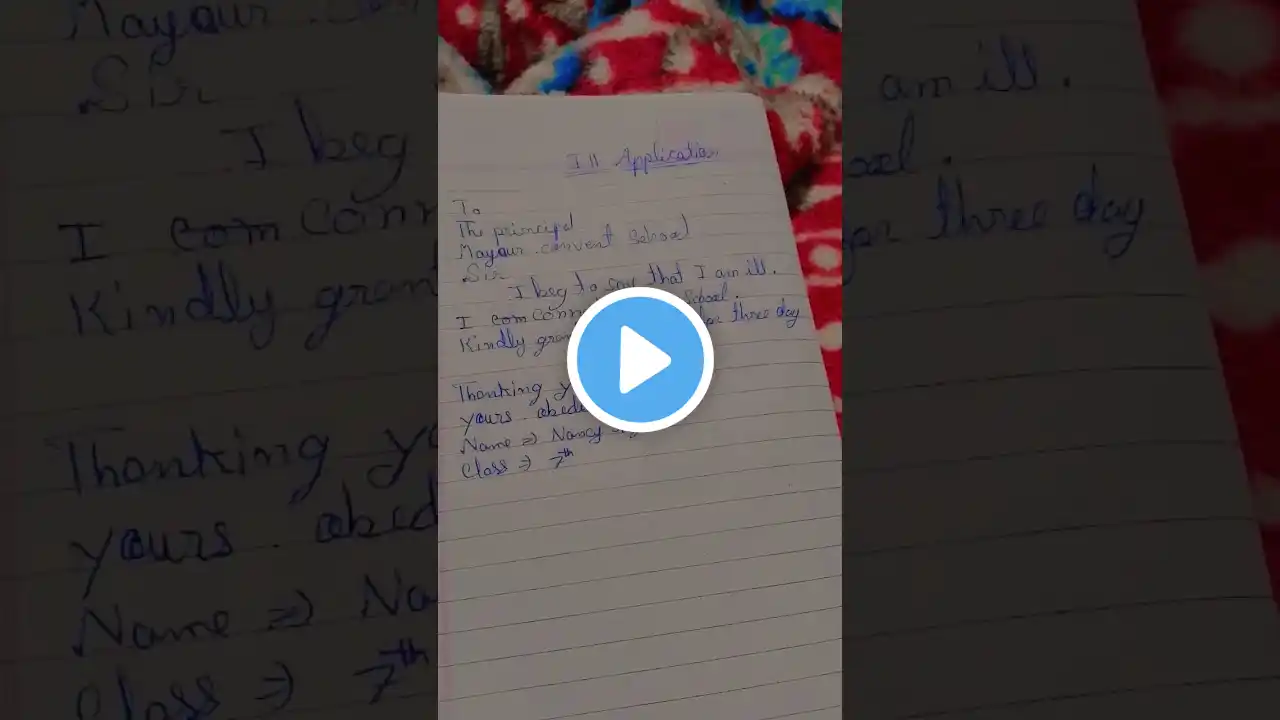 Ill Application
To
The principal
Mayour convent School
Sir
I beg to say that I am ill.
I com conn School.
Kindly gran for three day
Thonking
yours obed
Name => Nancy
Class => 7th